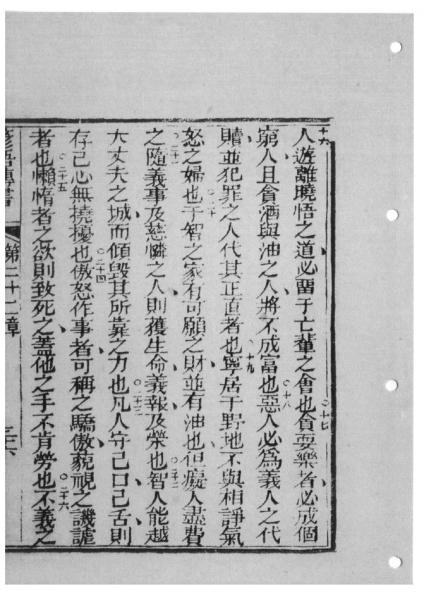 十六
人遊離曉悟之道必畱于亡輩之會也○十七貪耍樂者必成個
窮人且貪酒與油之人將不成富也○十八惡人必爲義人之代
贖並犯罪之人代其正直者也○十九寧居于野地不與相諍氣
怒之婦也○二十于智之家有可願之財並有油也但癡人盡費
之○二十一隨義事及慈憐之人則獲生命義報及榮也○二十二智人能越
大丈夫之城而傾毀其所靠之力也○二十三凡人守己口己舌則
存己心無撓擾也○二十四傲怒作事者可稱之驕傲藐視之譏謔
者也○二十五懶惰者之欲則致死之蓋他之手不肯勞也○二十六不義之
第二十一章